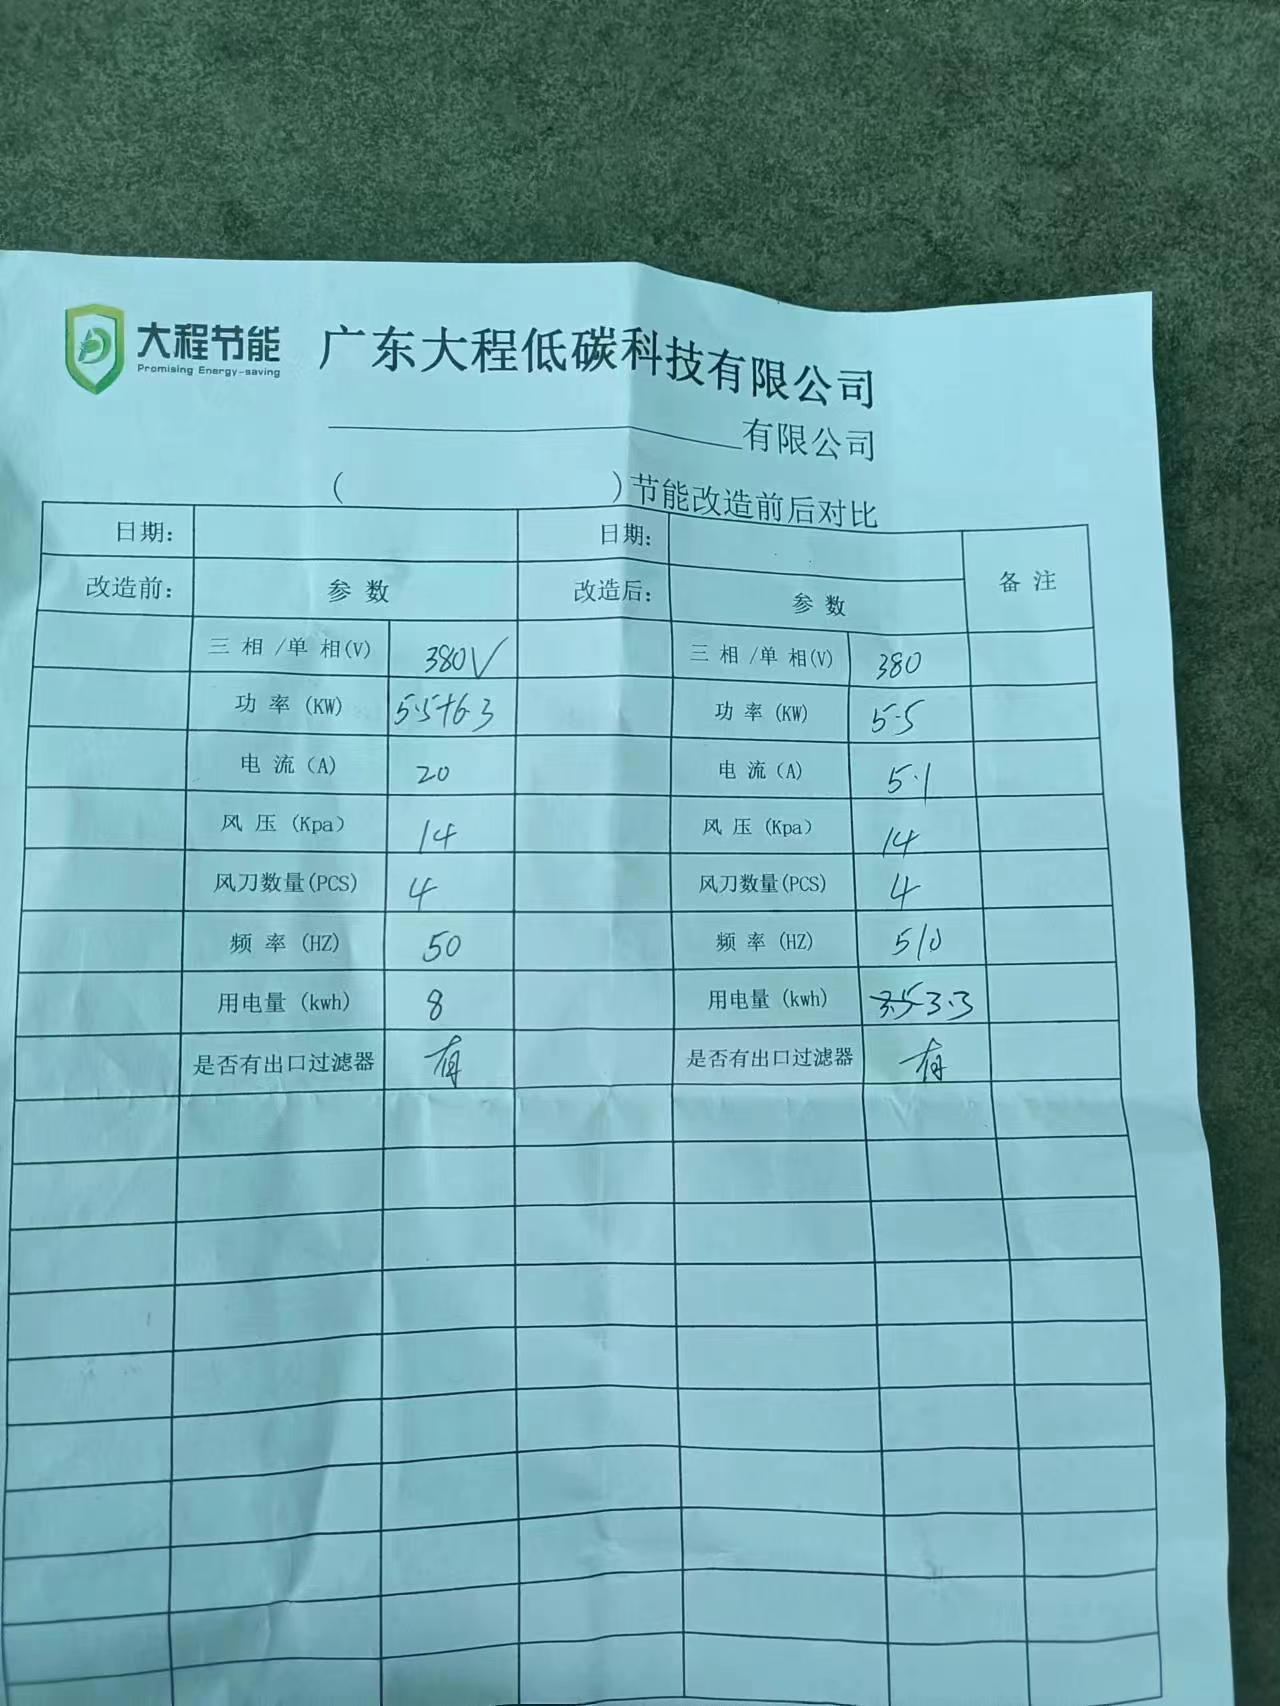 大程节能
Promising Energy-saving
广东大程低碳科技有限公司
有限公司
( )节能改造前后对比
日期: 日期: 备 注
改造前: 参 数 改造后: 参 数
三 相 /单 相(V) 380V 三 相 /单 相(V) 380
功 率 (KW) 5.5+6.3 功 率 (KW) 5.5
电 流 (A) 20 电 流 (A) 5.1
风 压 (Kpa) 14 风 压 (Kpa) 14
风刀数量(PCS) 4 风刀数量(PCS) 4
频 率 (HZ) 50 频 率 (HZ) 510
用电量 (kwh) 8 用电量 (kwh) 3.5 3.3
是否有出口过滤器 有 是否有出口过滤器 有